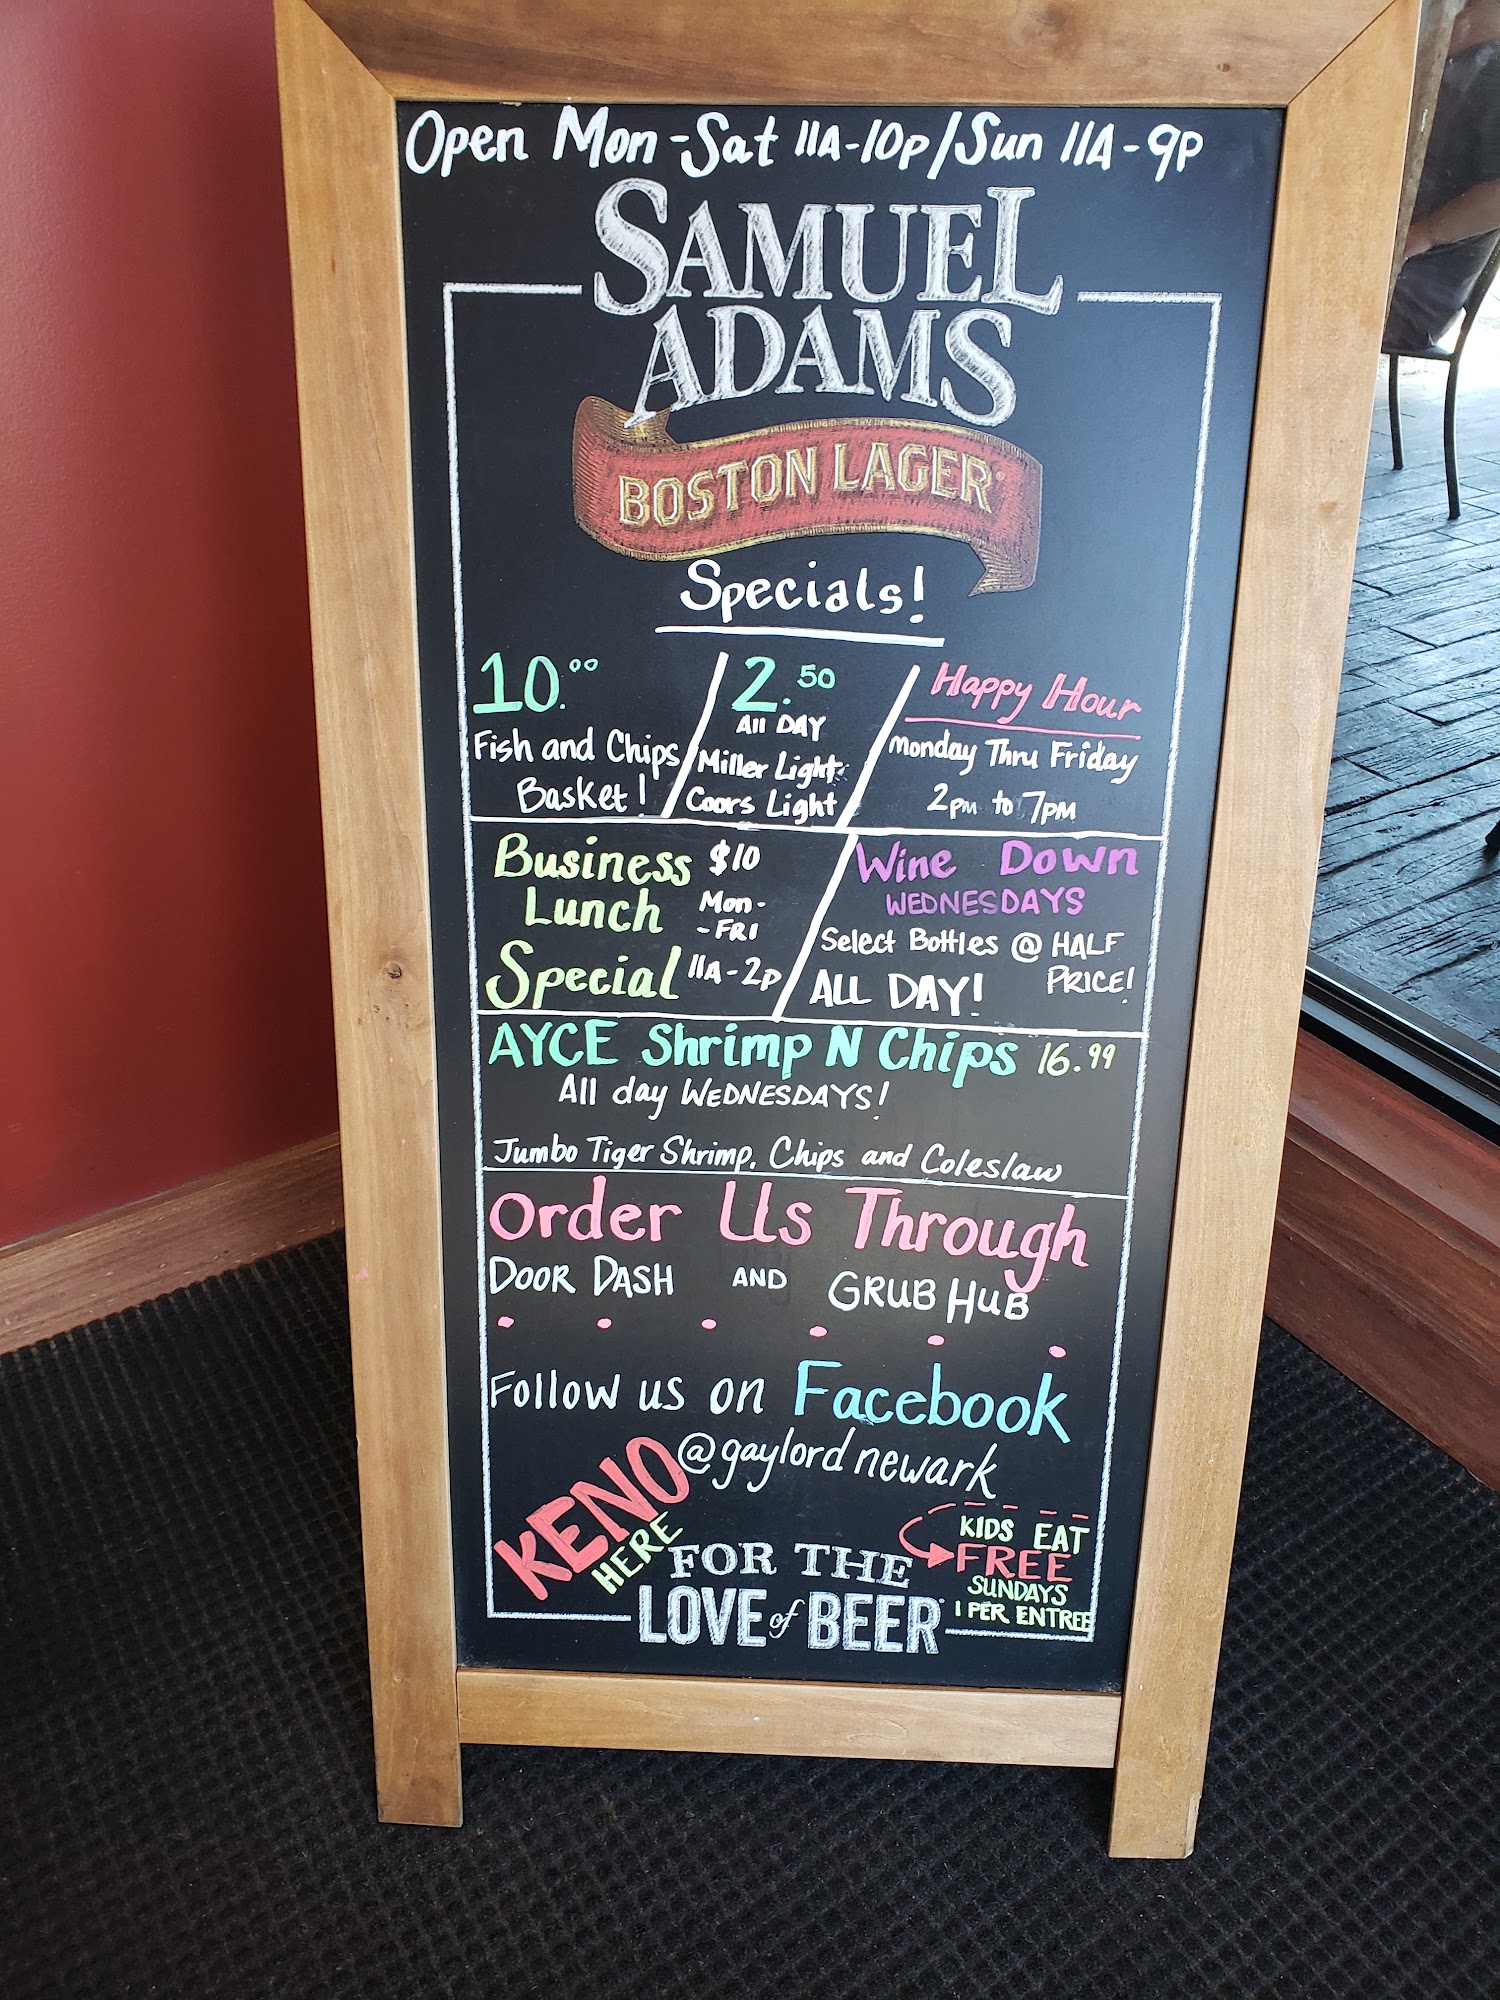 Open Mon - Sat 11A-10p / Sun 11A - 9p
SAMUEL
ADAMS
BOSTON LAGER
Specials!
10.00
Fish and Chips
Basket!
2.50
All DAY
Miller Light
Coors Light
Happy Hour
Monday Thru Friday
2pm to 7pm
Business $10
Lunch Mon-
-FRI
Special 11A-2p
Wine Down
WEDNESDAYS
Select Bottles @ HALF
PRICE!
ALL DAY!
AYCE Shrimp N Chips 16.99
All day WEDNESDAYS!
Jumbo Tiger Shrimp, Chips and Coleslaw
Order Us Through
DOOR DASH AND GRUB HUB
Follow us on Facebook
@gaylordnewark
KENO
HERE
FOR THE
LOVE of BEER
KIDS EAT
FREE
SUNDAYS
1 PER ENTREE